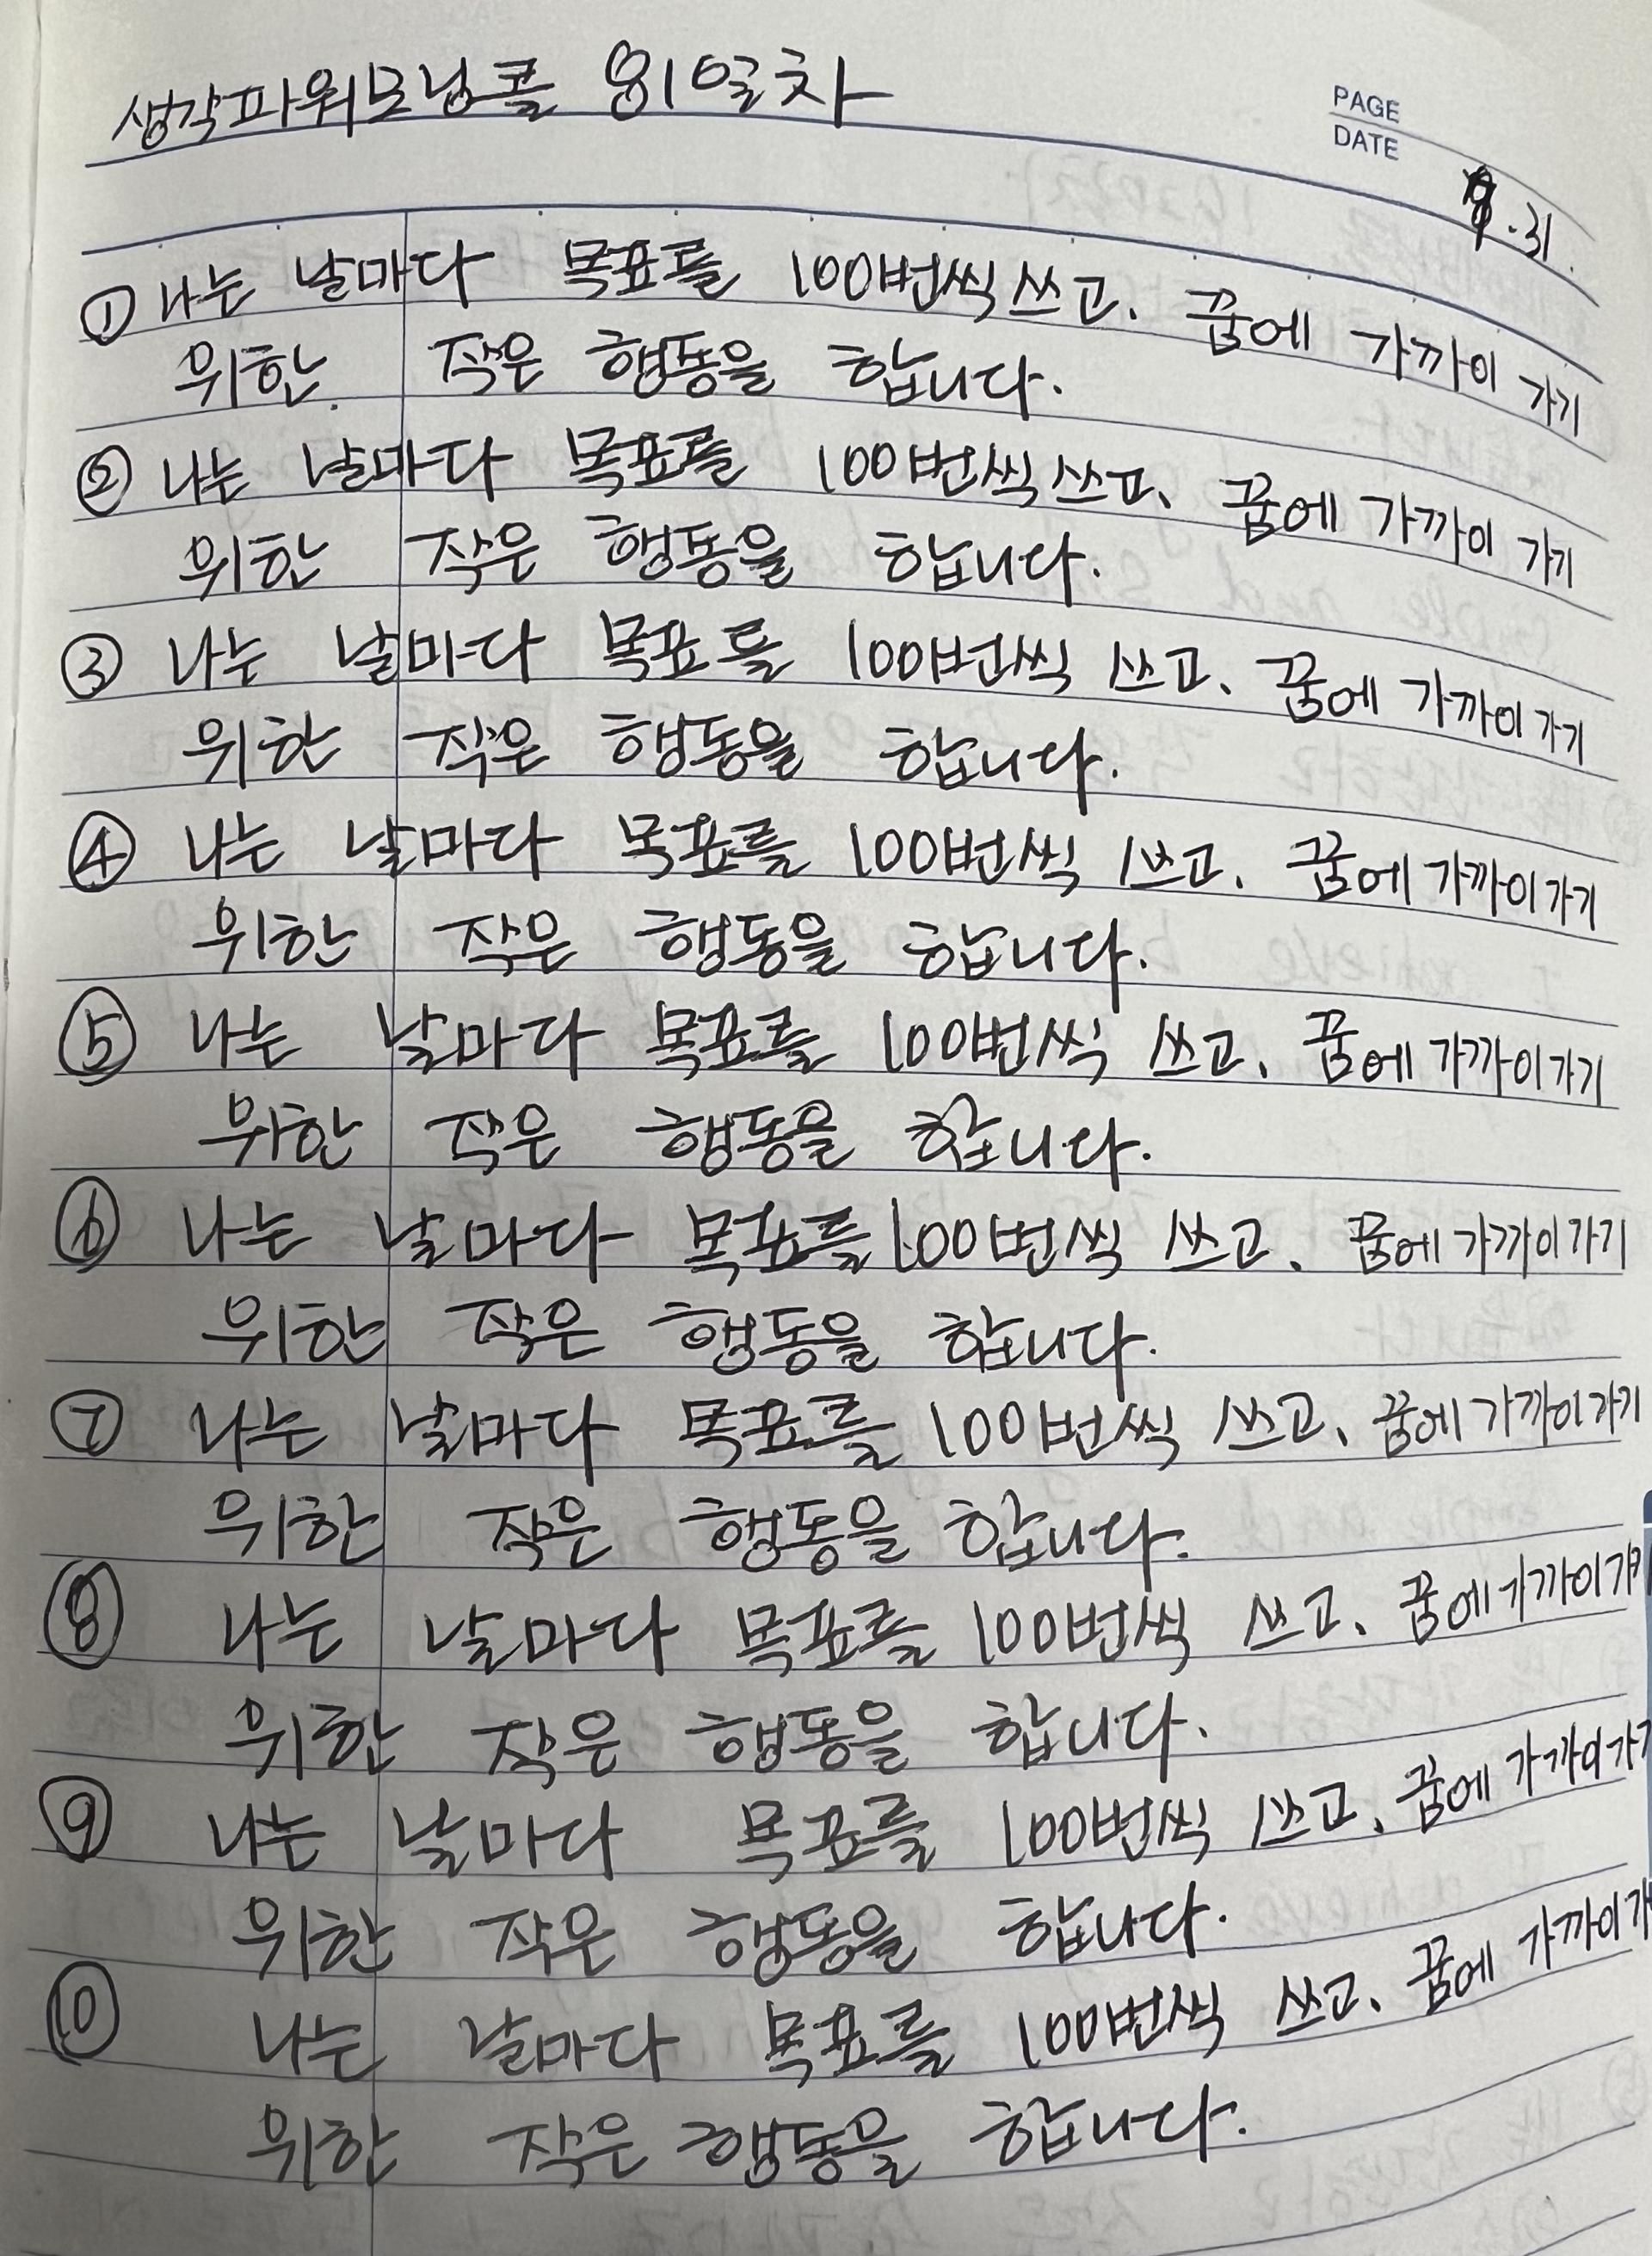 생각파워모닝콜 81일차
PAGE
DATE
.31.
① 나는 날마다 목표를 100번씩 쓰고, 꿈에 가까이 가기
위한 작은 행동을 합니다.
② 나는 날마다 목표를 100번씩 쓰고, 꿈에 가까이 가기
위한 작은 행동을 합니다.
③ 나는 날마다 목표를 100번씩 쓰고, 꿈에 가까이 가기
위한 작은 행동을 합니다.
④ 나는 날마다 목표를 100번씩 쓰고, 꿈에 가까이 가기
위한 작은 행동을 합니다.
⑤ 나는 날마다 목표를 100번씩 쓰고, 꿈에 가까이 가기
위한 작은 행동을 합니다.
⑥ 나는 날마다 목표를 100번씩 쓰고, 꿈에 가까이 가기
위한 작은 행동을 합니다.
⑦ 나는 날마다 목표를 100번씩 쓰고, 꿈에 가까이 가기
위한 작은 행동을 합니다.
⑧ 나는 날마다 목표를 100번씩 쓰고, 꿈에 가까이 가기
위한 작은 행동을 합니다.
⑨ 나는 날마다 목표를 100번씩 쓰고, 꿈에 가까이 가기
위한 작은 행동을 합니다.
⑩ 나는 날마다 목표를 100번씩 쓰고, 꿈에 가까이 가
위한 작은 행동을 합니다.